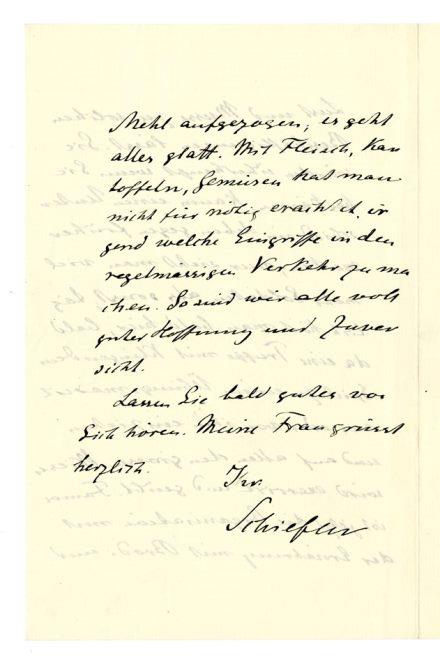 Mehl aufgezogen; es geht
alles glatt. Mit Fleisch, Kar
toffeln, Gemüsen hat man
nicht für nötig erachtet, ir
gend welche Eingriffe in den
regelmässigen Verkehr zu ma
chen. So sind wir alle voll
guter Hoffnung und Zuver
sicht.
Lassen Sie bald gutes von
Sich hören. Meine Frau grüsst
herzlich.
Ihr
Schiefler